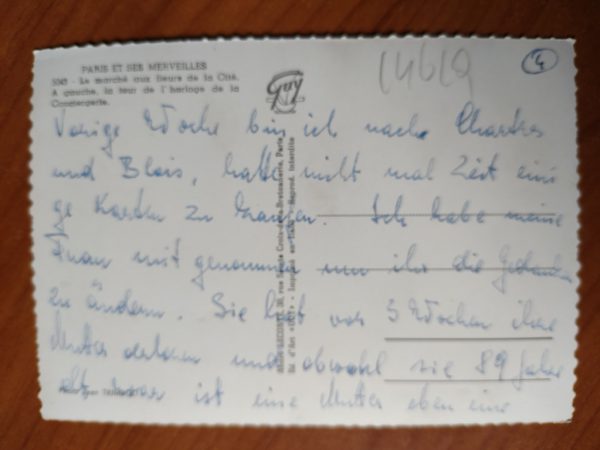 PARIS ET SES MERVEILLES
Le marché aux fleurs de la Cité.
A gauche, la tour de l'horloge de la
Conciergerie.
Guy
14619
4
Vorige Woche bin ich nach Chartres
und Blois, hatte nicht mal Zeit eini
ge Karten zu kaufen. Ich habe meine
Frau mit genommen um ihr die Gedanken
zu ändern. Sie hat vor 3 Wochen ihre
Mutter verloren und obwohl sie 89 Jahre
alt war ist eine Mutter eben eine
rue Sainte Croix-de-la-Bretonnerie, Paris
Reprod. interdite